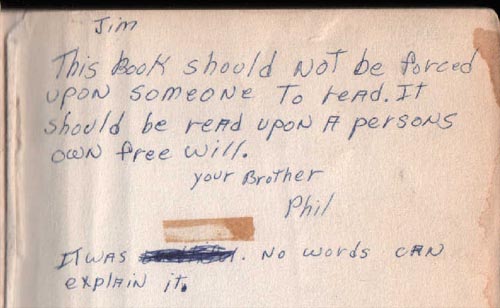 Jim
This Book should not be forced
upon someone to read. It
should be read upon a persons
own free will.
your Brother
Phil
It was . No words can
explain it.